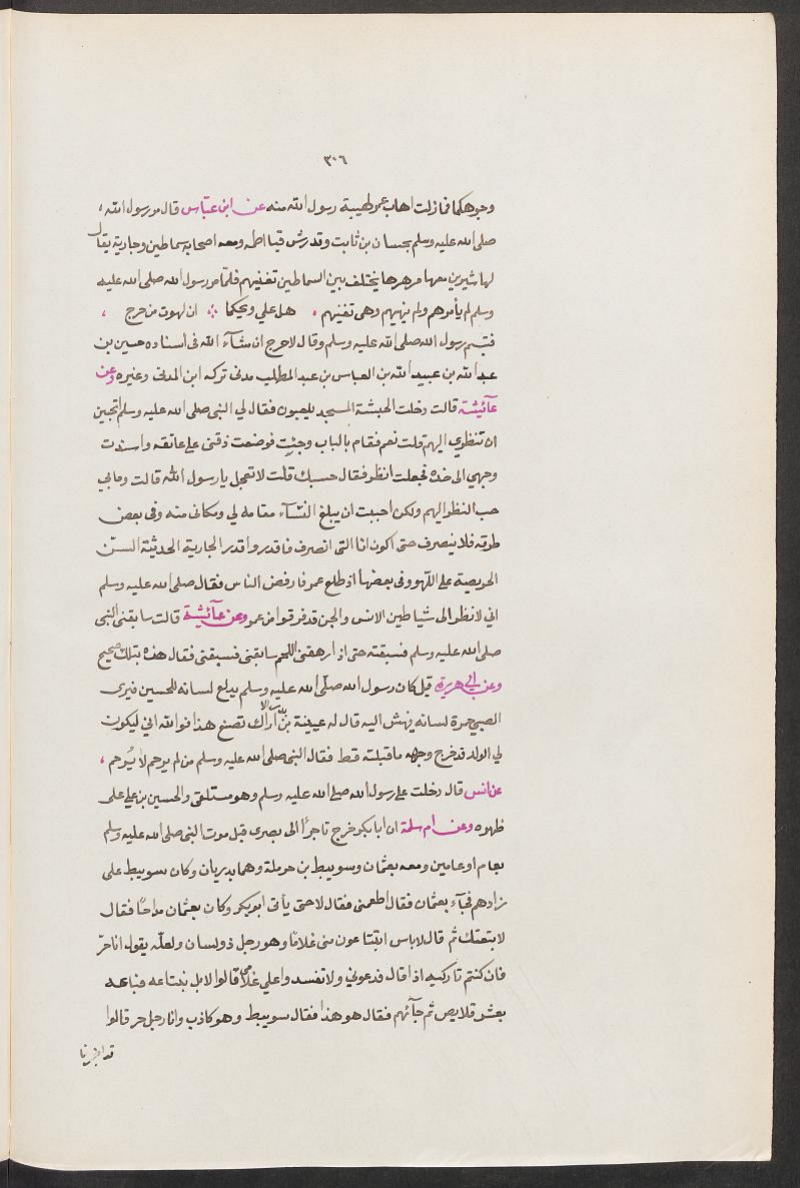 ٣٠٦
وجوهكما فما زلت اهاب عمر لهيبة رسول الله منه عن ابن عبّاس قال مر رسول الله
صلى الله عليه وسلم بحسان بن ثابت وقد رش فنا اطمه ومعه اصحابه سماطين وجارية يقال
لها شيرين معها مزهرها يختلف بين السماطين تغنيهم فلمّا مر رسول الله صلى الله عليه
وسلم لم يأمرهم ولم ينههم وهى تغنيهم هل علي ويحكما ان لهوت من حرج
فتبسم رسول الله صلى الله عليه وسلم وقال لاحرج ان شآء الله فى اسناده حسين بن
عبد الله بن عبيد الله بن العباس بن عبد المطلب مدنى تركه ابن المدنى وغيره وعن
عآئيشة قالت دخلت الحبشة المسجد يلعبون فقال لي النبى صلى الله عليه وسلم أتحبين
ان تنظري اليهم قلت نعم فقام بالباب وجئت فوضعت ذقنى على عاتقه واسندت
وجهي الى خده فجعلت انظر فقال حسبك قلت لا تعجل يا رسول الله قالت ومابي
حب النظر اليهم ولكن احببت ان يبلغ النسآء مقامه لي ومكانى منه وفى بعض
طرقه فلا ينصرف حتى اكون انا التى انصرف فاقدروا قدر الجارية الحديثة السن
الحريصة على اللهو وفى بعضها اذ طلع عمر فارفض الناس فقال صلى الله عليه وسلم
اني لانظر الى شياطين الانس والجن قد فرقوا من عمر وعن عآئيشة قالت سابقنى النبى
صلى الله عليه وسلم فسبقته حتى اذا رهقنى اللحم سابقنى فسبقنى فقال هذه بتلك صحيح
وعن ابي هريرة قيل كان رسول الله صلى الله عليه وسلم يدلع لسانه للحسين فيرى
الصبي حمرة لسانه يهش اليه قال له عيينة بن الا اراك تصنع هذا فوالله اني ليكون
لي الولد قد خرج وجهه ما قبلته قط فقال النبى صلى الله عليه وسلم من لم يرحم لا يُرحم
عن انس قال دخلت على رسول الله صلى الله عليه وسلم وهو مستلقى والحسين بن علي على
ظهره وعن ام سلمة ان ابا بكر خرج تاجرًا الى بصرى قبل موت النبى صلى الله عليه وسلم
بعام او عامين ومعه نعمان وسويبط بن حرملة وهما بدريان وكان سويبط على
زادهم فجآء نعمان فقال اطعمنى فقال لا حتى يأتى ابو بكر وكان نعمان مزاحًا فقال
لابتعتك ثم قال لاناس ابتتاعون منى غلامًا وهو رجل ذو لسان ولعلّه يقول انا حرّ
فان كنتم تاركيه اذا قال فدعوني ولا تفسدوا علي غلامى قالوا لا بل نبتاعه فباعه
بعشر قلايص ثم جآئهم فقال هو هذا فقال سويبط وهو كاذب وانا رجل حر قالوا
قد اخبرنا